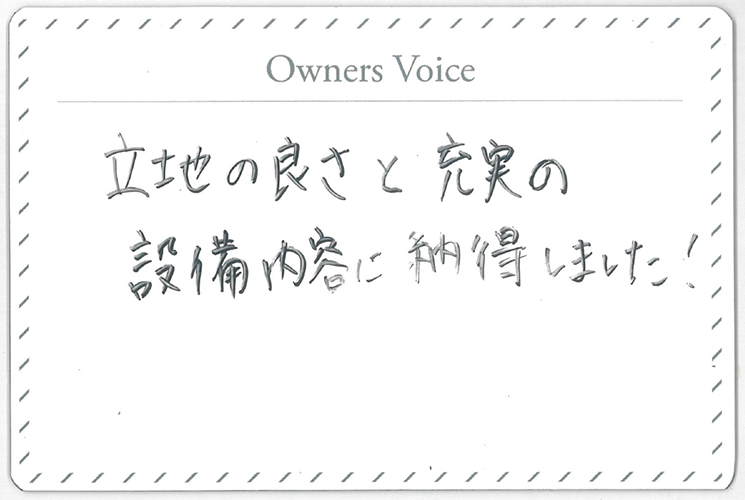 Owners Voice
立地の良さと充実の
設備内容に納得しました!